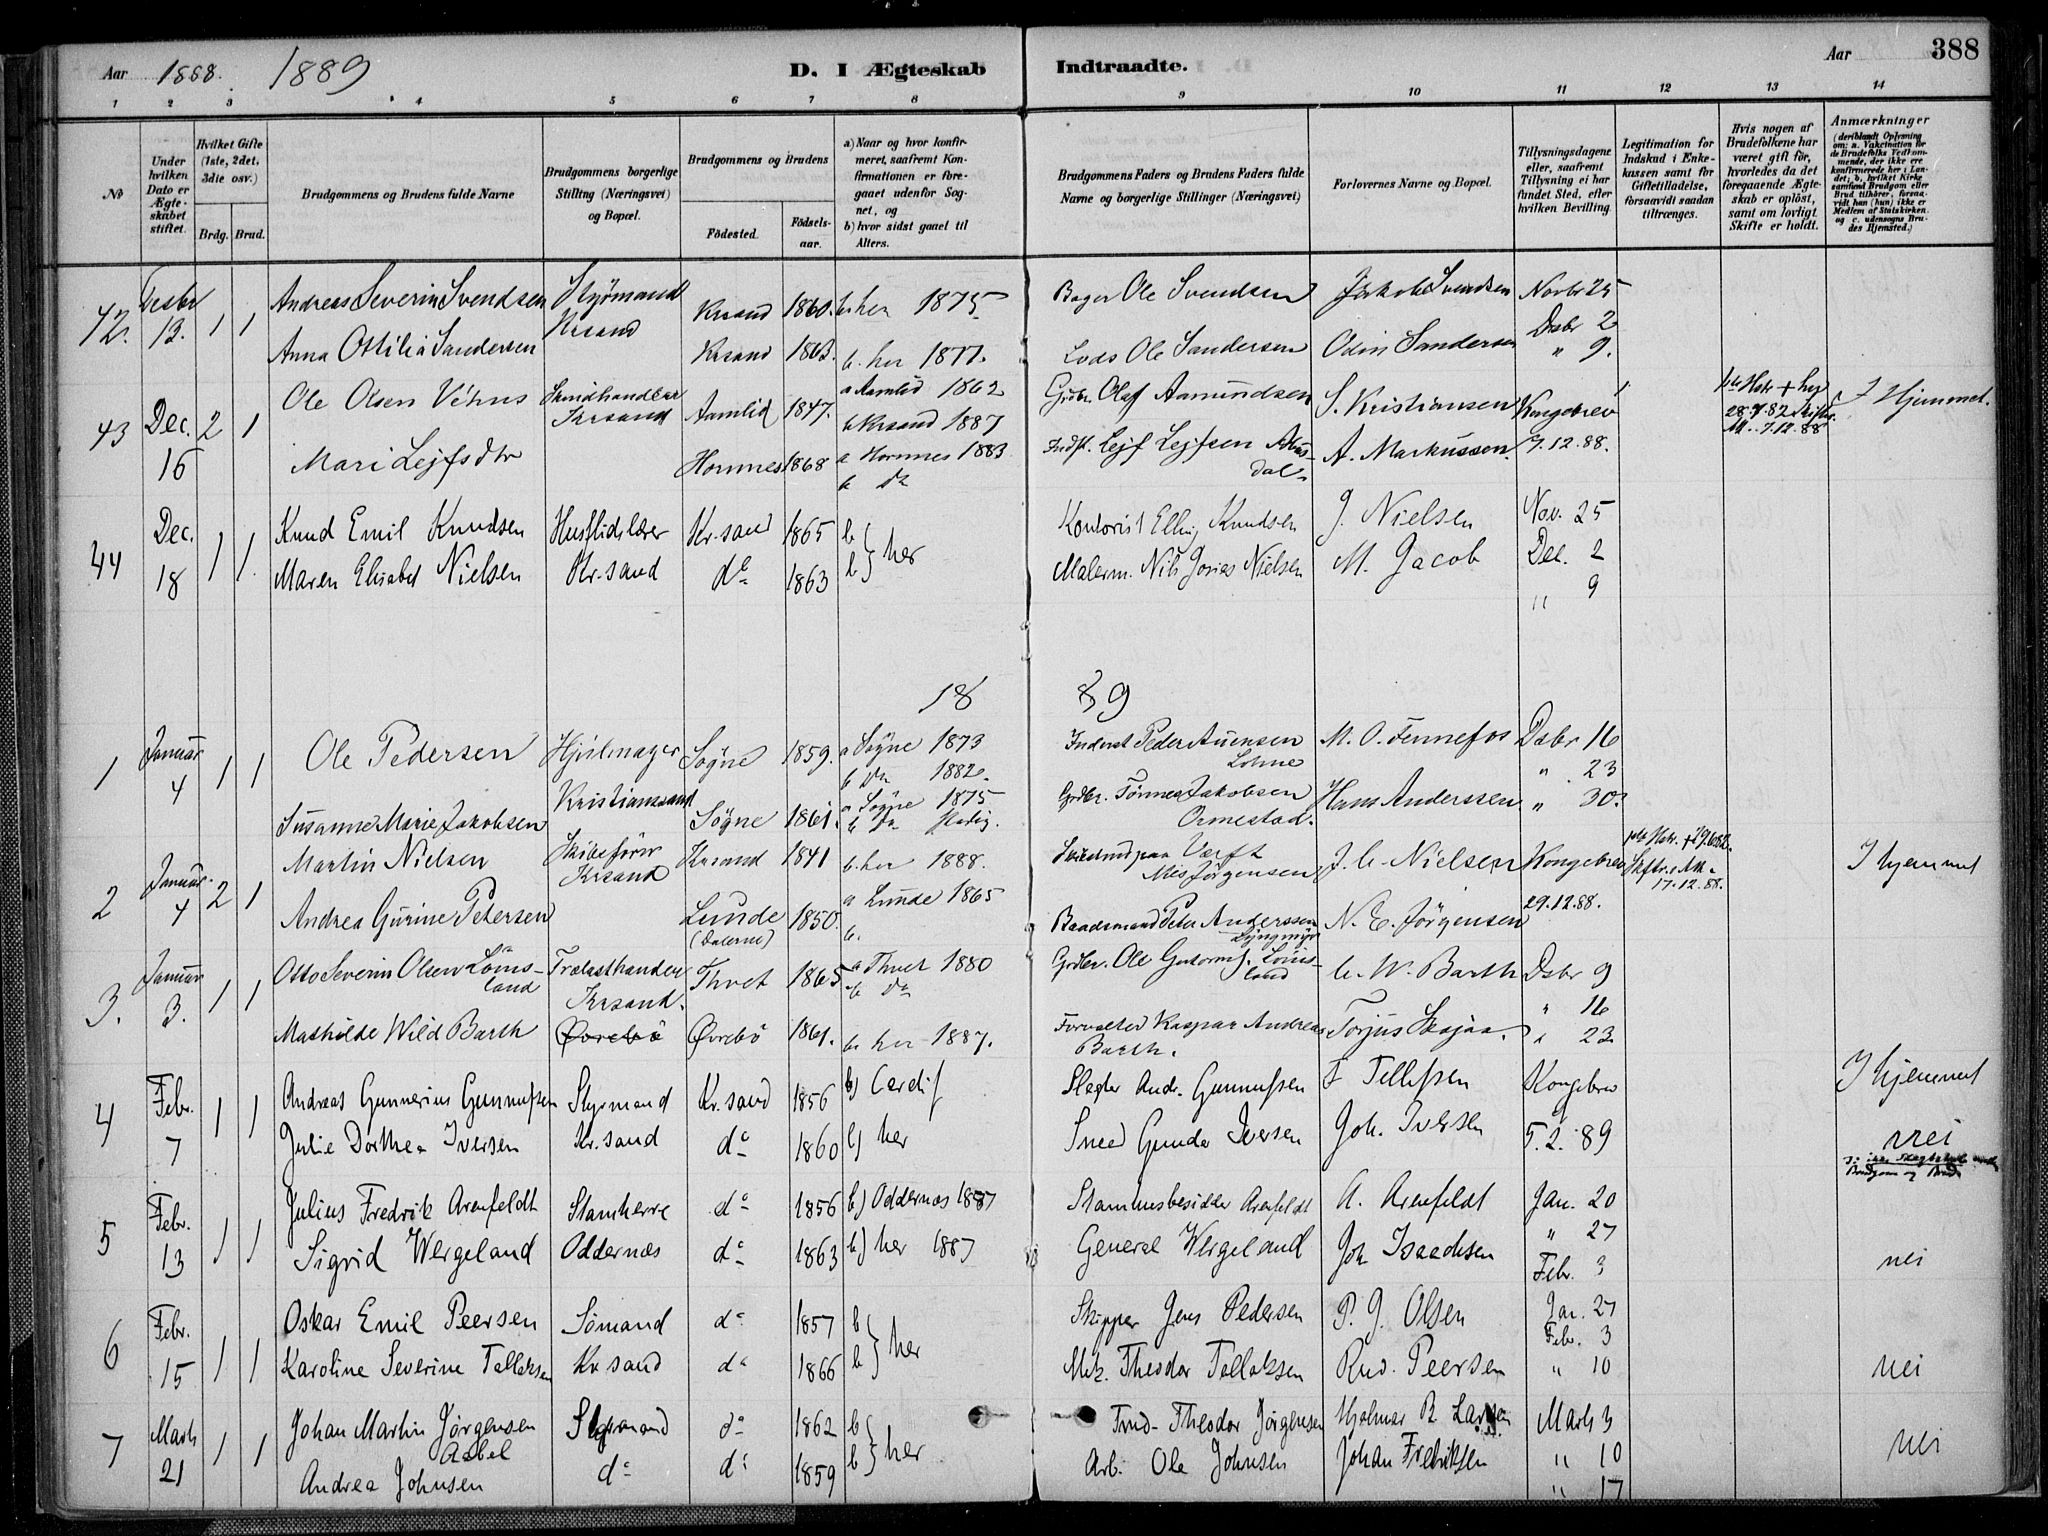 Aar 1888. 1889 D. I Ægteskab Indtraadte. Aar 388
1 2 3 4 5 6 7 8 9 10 11 12 13 14
No
Under hvilken Dato er Ægteskabet stiftet.
Hvilket Gifte (1ste, 2det, 3die osv.)
Brdg. Brud.
Brudgommens og Brudens fulde Navne
Brudgommens borgerlige Stilling (Næringsvei) og Bopæl.
Brudgommens og Brudens
Fødested. Fødselsaar.
a) Naar og hvor konfirmeret, saafremt Konfirmationen er foregaaet udenfor Sognet, og
b) hvor sidst gaaet til Alters.
Brudgommens Faders og Brudens Faders fulde Navne og borgerlige Stillinger (Næringsvei)
Forlovernes Navne og Bopæl.
Tillysningsdagene eller, saafremt Tillysning ei har fundet Sted, efter hvilken Bevilling
Legitimation for Indskud i Enkekassen samt for Giftetilladelse, forsaavidt saadan tiltrænges.
Hvis nogen af Brudefolkene har været gift før, hvorledes da det foregaaende Ægteskab er opløst, samt om lovligt Skifte er holdt.
Anmærkninger (deriblandt Oplysning om: a. Vakcination for de Brudefolks Vedkommende, der ikke ere konfirmerede her i Landet; b. hvilket Kirkesamfund Brudgom eller Brud tilhører, forsaavidt han (hun) ikke er Medlem af Statskirken og c. udensogns Brudes Hjemsted.)
42. Desbr 13. 1 1 Andreas Severin Svendsen Styrmand Krsand Krsand 1860. b. her 1875 Bager Ole Svendsen Jakob Svendsen Novbr 25
Anna Ottilia Sandersen Krsand 1863. b. her 1877. Lods Ole Sandersen Odin Sandersen Dsbr 2
" 9.
43 Dec. 16 2 1 Ole Olsen Vehus Skindhandler Krsand Aamlid 1847. a Aamlid 1862 b Krsand 1887 Grdbr. Olaf Aamundsen S. Kristiansen Kongebrev 28.7.82 7.12.88 I Hjemmet.
Mari Lejfsdtr Hornnes 1868 a Hornnes 1883 b do Indst. Lejf Lejfsen A. Markussen. 7.12.88.
44 Dec. 18 1 1. Knud Emil Knudsen Husflidslærer Kr.sand Kr.sand 1865 b} her Kontorist Elling Knudsen J. Nielsen Nov. 25
Maren Elisabet Nielsen do 1863 b} Malerm. Nils Josias Nielsen M. Jacob Dec. 2
" 9
18 89
1 Januar 4 1 1 Ole Pedersen Hjulmager Kristianssand Søgne 1859. a Søgne 1873 b do 1882. Inderst Peder Auensen Lohne M. O. Fennefos Dsbr 16
" 23
Susanne Marie Jakobsen Søgne 1861. a Søgne 1875 b do Grdbr. Tønnes Jakobsen Ormestad. Hans Anderssen " 30.
2 Januar 4 2 1 Martin Nielsen Skibsfører Krsand Krsand 1841 b. her 1888. Værft Jørgensen J. C. Nielsen Kongebrev 17.12.88. I hjemmet
Andrea Gurine Petersen Lunde (Dalerne) 1850. a Lunde 1865 b. Baadsmand Peter Anderssen N. E. Jörgensen 29.12.88.
3. Januar 3. 1 1 Otto Severin Olsen Lönsland Trælasthandler Krsand. Thvet 1865 a Thvet 1880 b do Grdbr. Ole Gutorms. Lönsland C. W. Barth Dsbr 9
" 16
Mathilde Wild Barth Øvrebø Øvrebö 1861. b. her 1887. Forvalter Kaspar Andreas Barth. Torjus Skajaa. " 23
4 Febr. 7 1 1 Andreas Gunnerius Gunnufsen Styrmand Kr.sand Kr.sand 1856 b) Cardif Slagter Andr. Gunnufsen F Tellefsen Kongebrev I hjemmet
Julie Dorthea Iversen do 1860 b) her Sned Gunder Iversen Joh. Iversen 5.2.89 nei
5 Febr. 13 1 1 Julius Fredrik Arenfeldt Stamherre Oddernæs do 1856 b) Oddernæs 1887 Stamhusbesidder Arenfeldt A. Arenfeldt Jan. 20
" 27
Sigrid Wergeland do 1863 b) her 1887 General Wergeland Joh Isaachsen Febr. 3 nei
6 Febr. 15 1 1 Oskar Emil Peersen Sømand Kr sand do 1857 b} her Skipper Jens Pedersen P. J. Olsen Jan. 27
Febr. 3
Karoline Severine Tallaksen do 1866 b} Mtr. Theodor Tallaksen Rud. Peersen " 10 nei
7 Marts 21 1 1 Johan Martin Jørgensen Aabel Styrmand do 1862 b} her Theodor Jørgensen Hjalmar R. Larsen Marts 3
Andrea Johnsen do do 1859 b} Arb. Ole Johnsen Johan Fredriksen " 10 nei
" 17